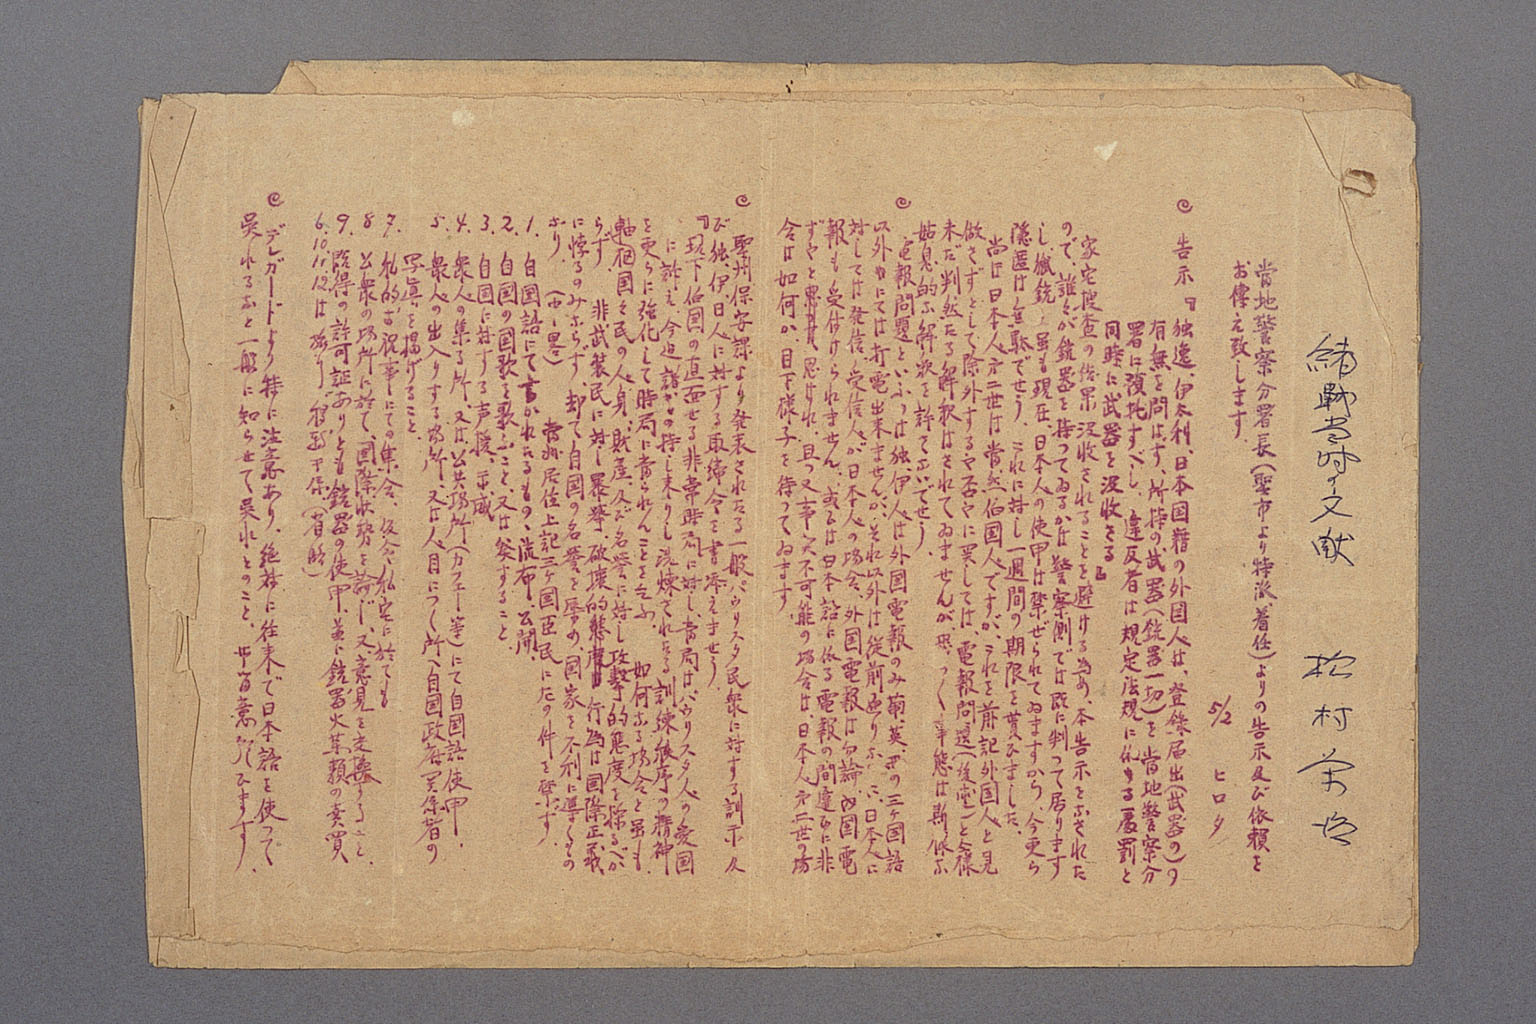 緒戦当時ノ文献 松村栄治
当地警察分署長(聖市より特派着任)よりの告示及び依頼を
お傳え致します。
5/2 ヒロタ
告示『独逸、伊太利、日本国籍の外国人は、登録届出(武器の)の
有無を問はず、所持の武器(銃器一切)を当地警察分
署に預托すべし、違反者は規定法規に依る處罰と
同時に武器を没收さる』
家宅捜査の結果没收されることを避ける為め、本告示となされた
ので、誰々が銃器を持ってゐるかは警察側では既に判って居ります
し、猟銃と雖も現在、日本人の使用は禁ぜられてゐますから、今更ら
隠匿は無駄でせう。これに対し一週間の期限を貰ひました。
尚は日本人第二世は当然伯国人ですが、これを前記外国人と見
做さずとして除外するや否やに関しては、電報問題(後述)と全様
未だ判然たる解釈はされてゐませんが、
姑息的な解釈を許さないでせう。
電報問題といふのは独、伊人は外国電報のみ葡、英、西の三ヶ国語
以外にては打電出来ませんが、それ以外は従前通りなるに、日本人に
対しては発信、受信人が日本人の場合、外国電報は勿論、内国電
報も受付けられません。或るは日本語に依る電報の間違ひに非
ずやと思はれ、且つ又事実不可能の場合は、日本人第二世の場
合は如何か、目下様子を待ってゐます。
聖州保安課より発表されたる一般パウリスタ民衆に対する訓示及
び独、伊、日人に対する取締令を書添えませう。
『現下伯国の直面せる非常時局に対し、当局はパウリスタ人の愛国
に訴え、今迄諸からの持し来りし洗煉されたる訓練秩序の精神
を更らに強化して時局に当られんことを乞ふ。 如何なる場合と雖も
軸枢国々民の人身、財産及び名誉に対し攻撃的態度を採るべか
らず。非武装民に対し暴挙、破壊的態度行為は国際正義
に悖るのみならず、却て自国の名誉を辱め、国家を不利に導くもの
なり。(中略) 当州居住上記三ヶ国臣民に左の件を禁ず。
1. 自国語にて書かれたるもの、流布、公開、
2. 自国の国歌を歌ふこと、又は奏すること
3. 自国に対する声援、示威
4. 衆人の集る所、又は公共場所(カフェー等)にて自国語使用、
5. 衆人の出入りする場所、又は人目につく所へ自国政府関係者の
写真を掲げること、
7. 私的お祝事にての集合、仮令私宅に於ても
8. 公衆の場所に於て、国際状勢を論じ、又意見を交換すること、
9. 既得の許可証ありとも銃器の使用、並に銃器火薬類の売買
6. 10. 11. 12. は(省略)
デレガードより特に注意あり、絶対に往来で日本語を使って
呉れるなと一般に知らせて呉れとのこと、御留意